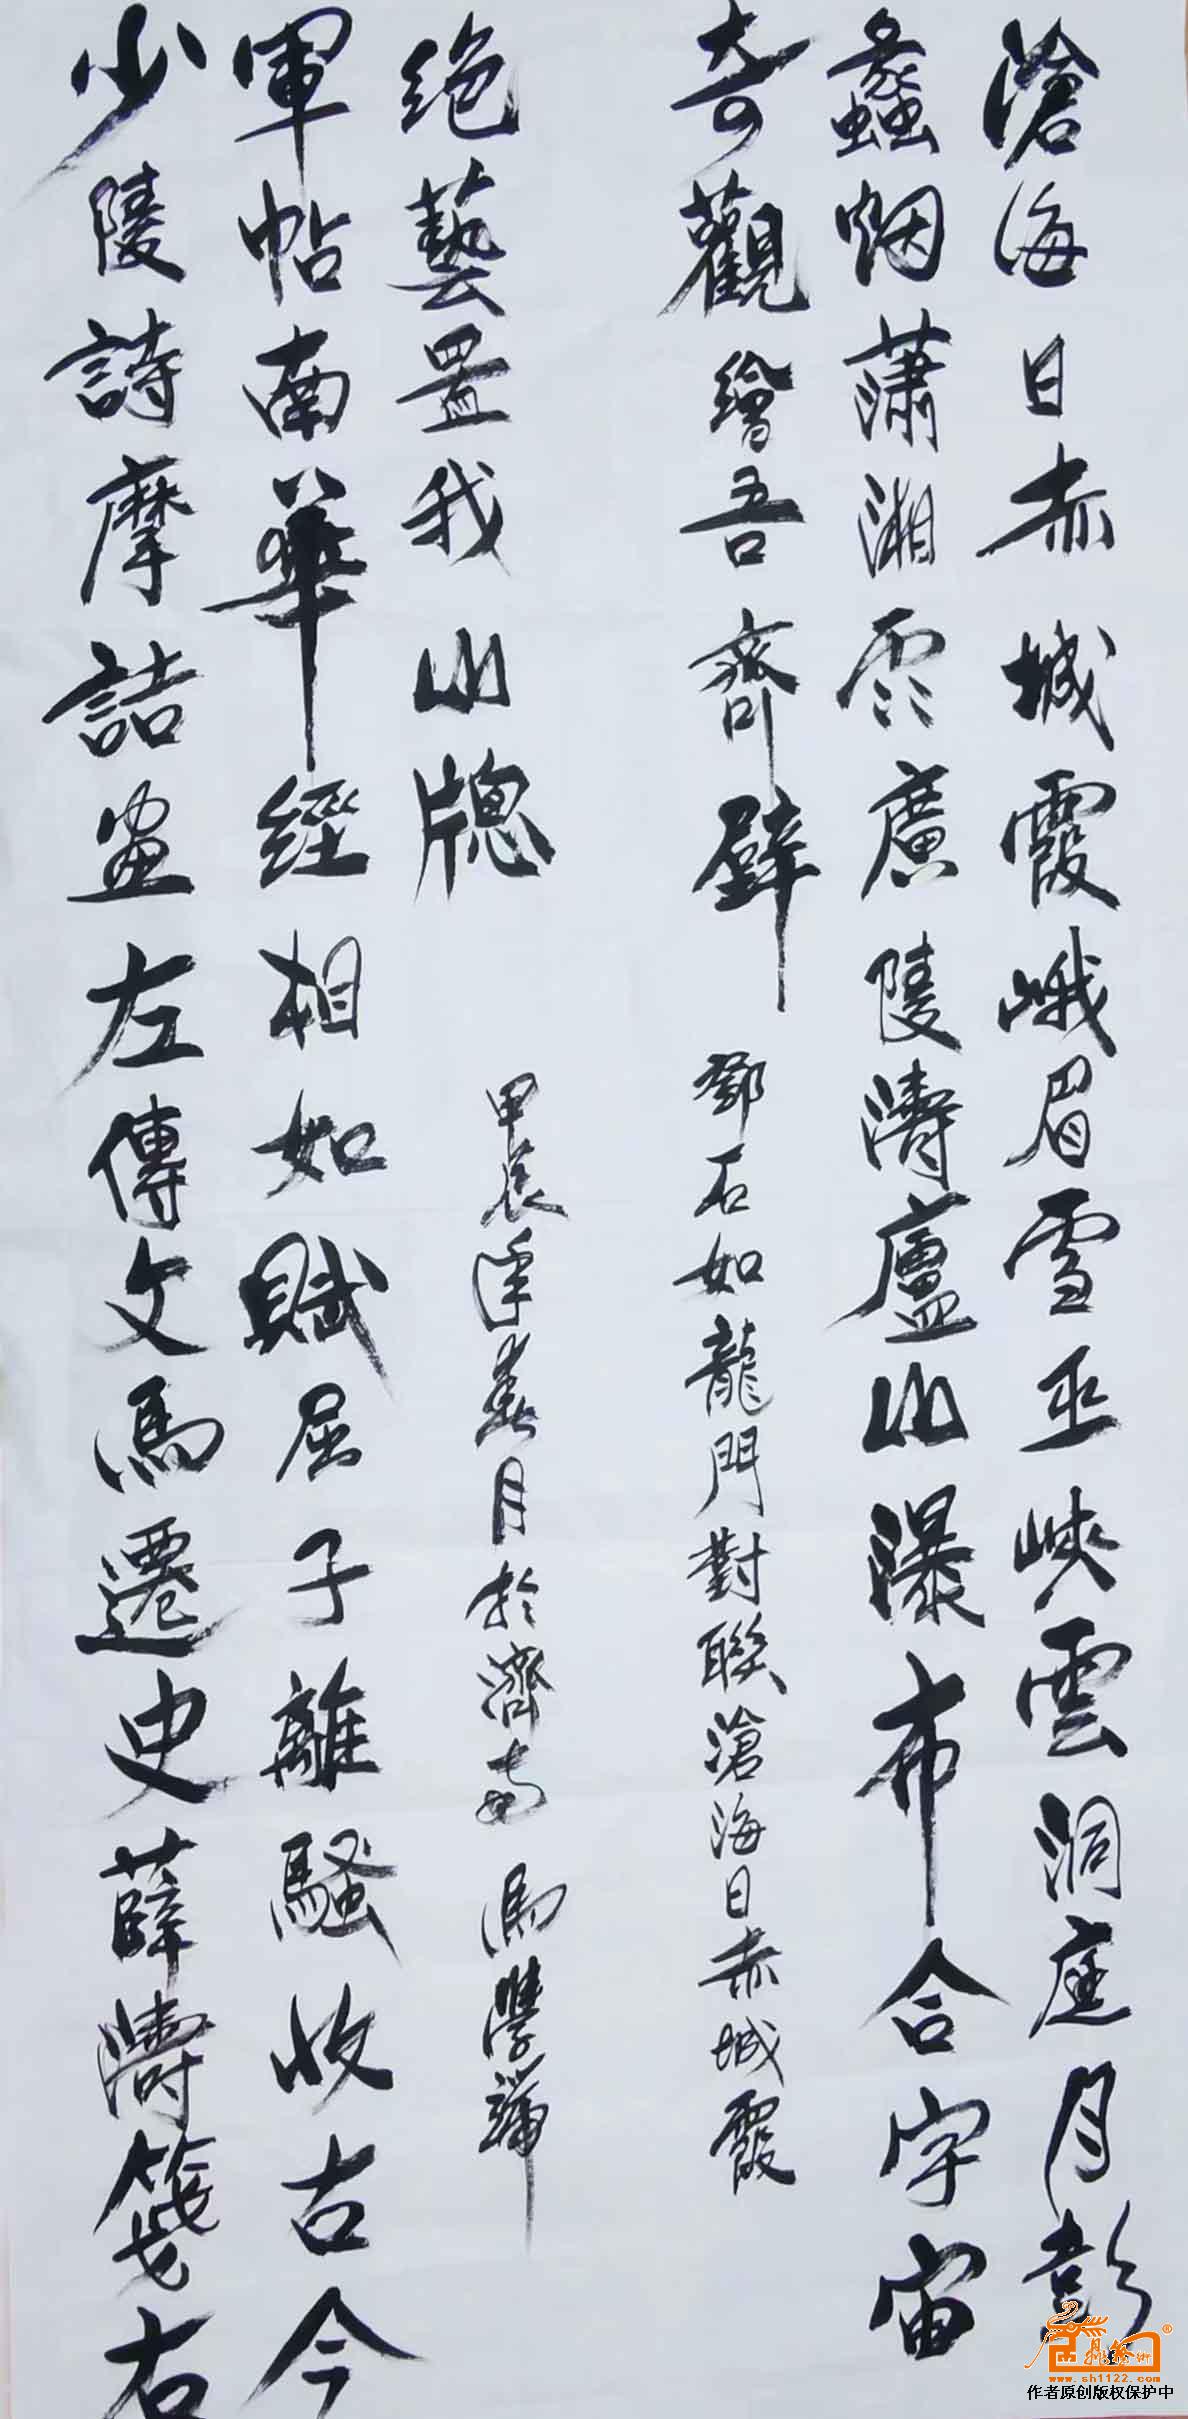 滄海日赤城霞峨眉雪巫峽雲洞庭月彭
蠡烟瀟湘雨廣陵濤廬山瀑布合宇宙
奇觀繪吾齋壁
鄧石如龍門對聯滄海日赤城霞
少陵詩摩詰畫左傳文馬遷史薛濤箋右
軍帖南華經相如賦屈子離騷收古今
绝藝置我山牕
甲辰季春月於濟南 馬學
www.sh1122.com
作者原创版权保护中